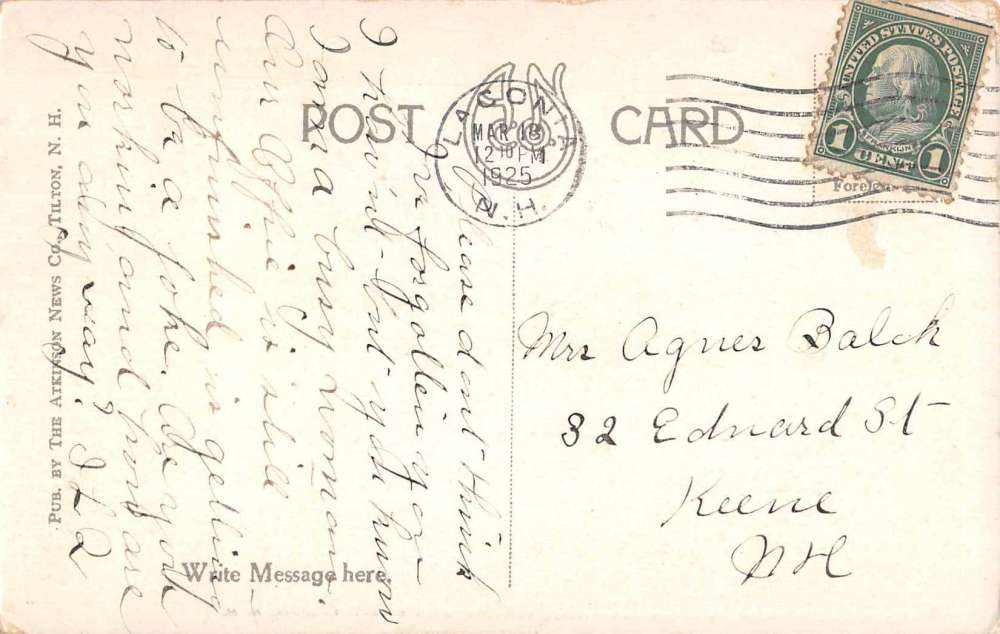 POST CARD
LACONIA
MAR 18
12 PM
1925
N.H.
UNITED STATES POSTAGE
FRANKLIN
1 CENT 1
Foreign
Please dont think
I've forgotten you
I hav'nt - but you know
I am a busy woman.
Our Office is still
unfinished, is getting
to be a joke. Are you
working and how are
you any way? 
PUB. BY THE ATKINSON NEWS CO., TILTON, N. H.
Write Message here.
Mrs Agnes Balch
32 Edward St
Keene
NH